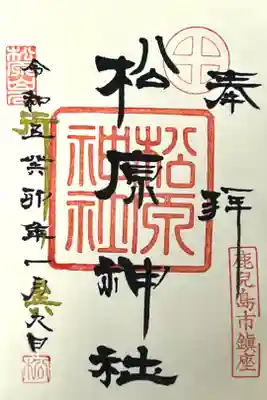 奉拝
鹿児島市鎮座
松原神社
松原神社
令和五癸卯年一月
日
松